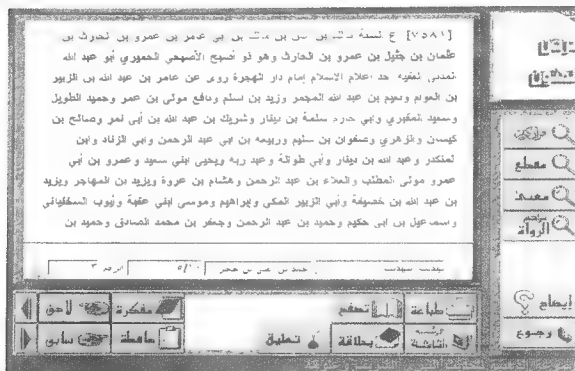 [٧٥٨١] ع الستة مالك بن انس بن مالك بن ابي عامر بن عمرو بن الحارث بن
عثمان بن جثيل بن عمرو بن الحارث وهو ذو اصبح الأصبحي الحميري أبو عبد الله
المدني الفقيه احد اعلام الاسلام إمام دار الهجرة روى عن عامر بن عبد الله بن الزبير
بن العوام ونعيم بن عبد الله المجمر وزيد بن اسلم ونافع مولى بن عمر وحميد الطويل
وسعيد المقبري وابي حازم سلمة بن دينار وشريك بن عبد الله بن أبي نمر وصالح بن
كيسان والزهري وصفوان بن سليم وربيعة بن ابي عبد الرحمن وابي الزناد وابن
المنكدر وعبد الله بن دينار وأبي طوالة وعبد ربه ويحيى ابني سعيد وعمرو بن أبي
عمرو مولى المطلب والعلاء بن عبد الرحمن وهشام بن عروة ويزيد بن المهاجر ويزيد
بن عبد الله بن خصيفة وأبي الزبير المكي وإبراهيم وموسى ابني عقبة وأيوب السختياني
واسماعيل بن ابي حكيم وحميد بن عبد الرحمن وجعفر بن محمد الصادق وحميد بن
مقطع
معنى
تراجم الرواة
إيضاح
رجوع
طباعة
تصفح
مفكرة
لاحق
القائمة الرئيسية
بطاقة
تعليق
حافظة
سابق